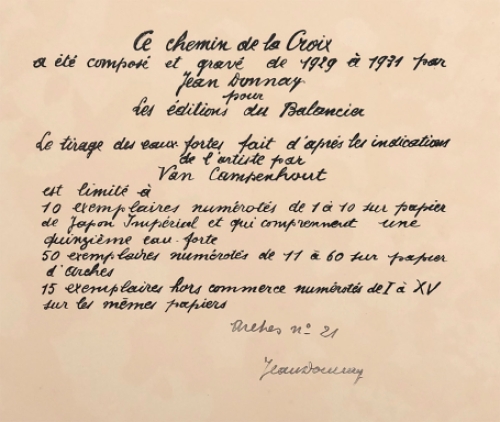 Ce chemin de la Croix
a été composé et gravé de 1929 à 1931 par
Jean Donnay
pour
Les éditions du Balancier
Le tirage des eaux-fortes fait d'après les indications
de l'artiste par
Van Campenhout
est limité à
10 exemplaires numérotés de 1 à 10 sur papier
de Japon Impérial et qui comprennent une
quinzième eau-forte
50 exemplaires numérotés de 11 à 60 sur papier
d'Arches
15 exemplaires hors commerce numérotés de I à XV
sur les mêmes papiers
Arches n° 21
Jean Donnay